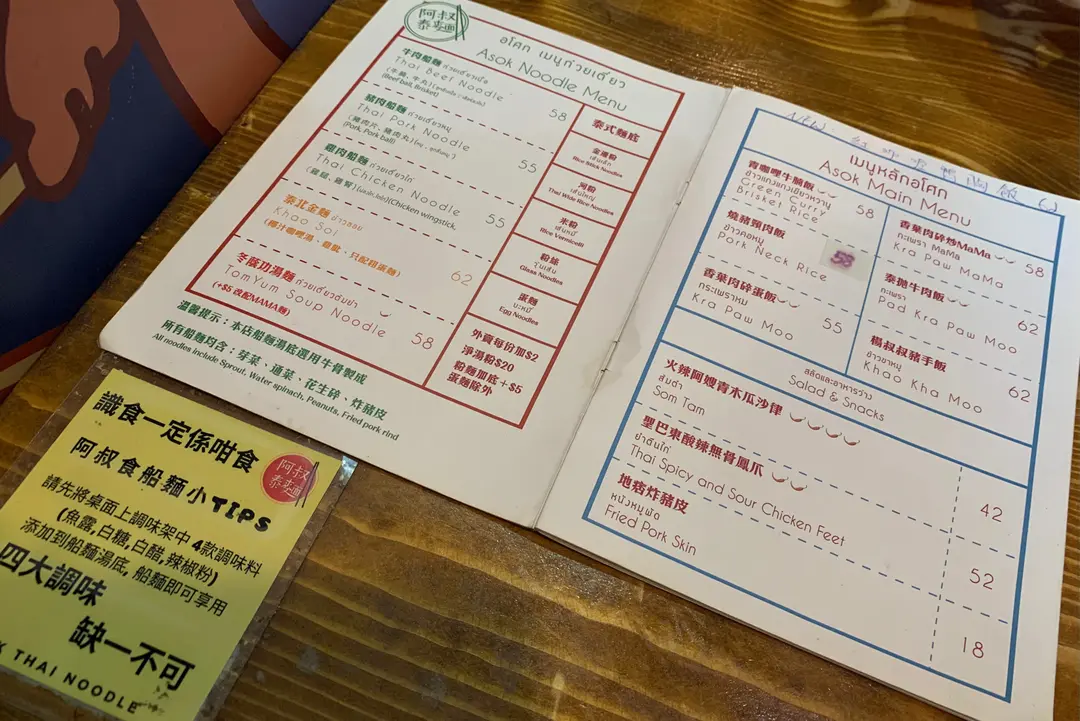 阿叔
泰麵
อโศก เมนูก๋วยเตี๋ยว
Asok Noodle Menu
牛肉船麵 ก๋วยเตี๋ยวเนื้อ
Thai Beef Noodle 58
(Beef ball, Brisket)
豬肉船麵 ก๋วยเตี๋ยวหมู
Thai Pork Noodle 55
(Pork, Pork ball)
雞肉船麵 ก๋วยเตี๋ยวไก่
Thai Chicken Noodle 55
(Chicken wingstick,
泰北金麵 ข้าวซอย
Khao Soi 62
冬蔭功湯麵 ก๋วยเตี๋ยวต้มยำ
TomYum Soup Noodle 58
(+$5 改配MAMA麵)
泰式麵底
金邊粉
เส้นเล็ก
Rice Stick Noodles
河粉
เส้นใหญ่
Thai Wide Rice Noodles
米粉
เส้นหมี่
Rice Vermicelli
粉絲
วุ้นเส้น
Glass Noodles
蛋麵
บะหมี่
Egg Noodles
外賣每份加$2
淨湯粉$20
粉麵加底+$5
蛋麵除外
溫馨提示：本店船麵湯底選用牛骨製成
所有船麵均含：芽菜、通菜、花生碎、炸豬皮
All noodles include Sprout, Water spinach, Peanuts, Fried pork rind
NEW: 紅咖喱鴨胸飯 62
เมนูหลักอโศก
Asok Main Menu
青咖喱牛腩飯
ข้าวแกงแกงเขียวหวาน
Green Curry
Brisket Rice 58
燒豬頸肉飯
ข้าวคอหมู
Pork Neck Rice 58
香葉肉碎蛋飯
กระเพราหม
Kra Paw Moo 55
香葉肉碎炒MaMa
กะเพรา MaMa
Kra Paw MaMa 58
泰拋牛肉飯
กะเพรา
Pad Kra Paw Moo 62
楊叔叔豬手飯
ข้าวขาหมู
Khao Kha Moo 62
สลัดและอาหารว่าง
Salad & Snacks
火辣阿嫂青木瓜沙律
ส้มตำ
Som Tam 42
聖巴東酸辣無骨鳳爪
ยำตีนไก่
Thai Spicy and Sour Chicken Feet 52
地痞炸豬皮
หนังหมูทอด
Fried Pork Skin 18
識食一定係咁食
阿叔
泰麵
阿叔食船麵小TIPS
請先將桌面上調味架中 4款調味料
(魚露,白糖,白醋,辣椒粉)
添加到船麵湯底, 船麵即可享用
四大調味
缺一不可
K THAI NOODLE